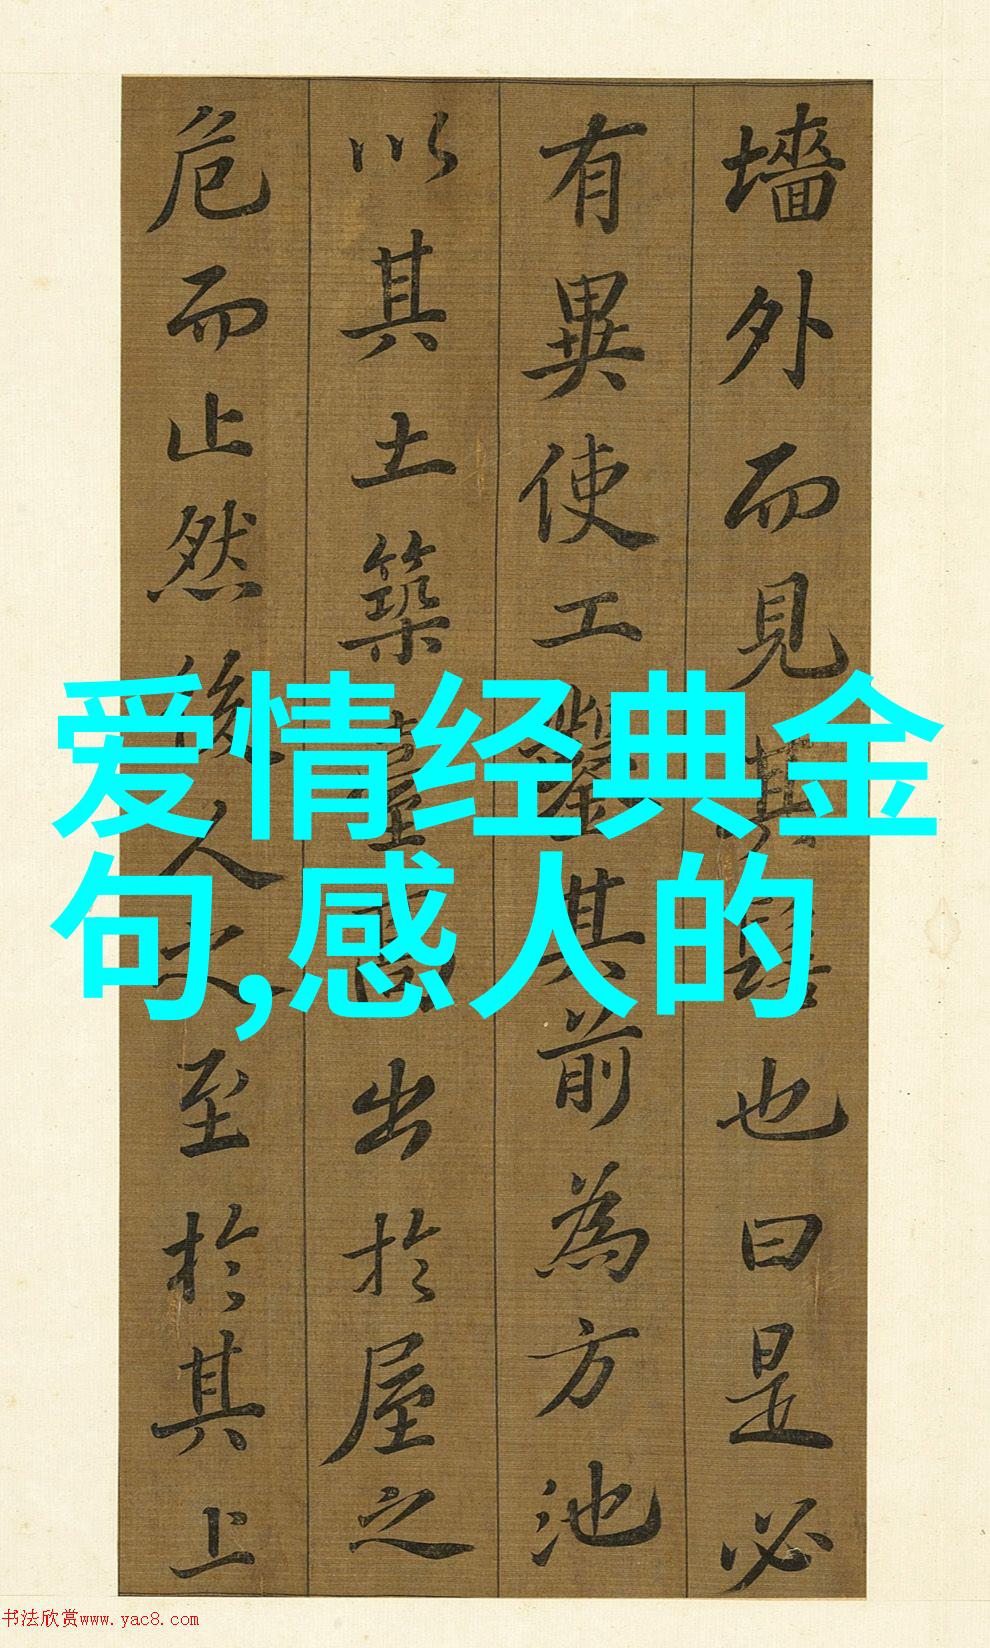 墻外而見其髻也曰是必
有異使工鑿其前為方池
以其土築臺高出於屋之
危而止然後人之至於其上
爱情经典金
句,感人的
书法欣赏www.yac8.com